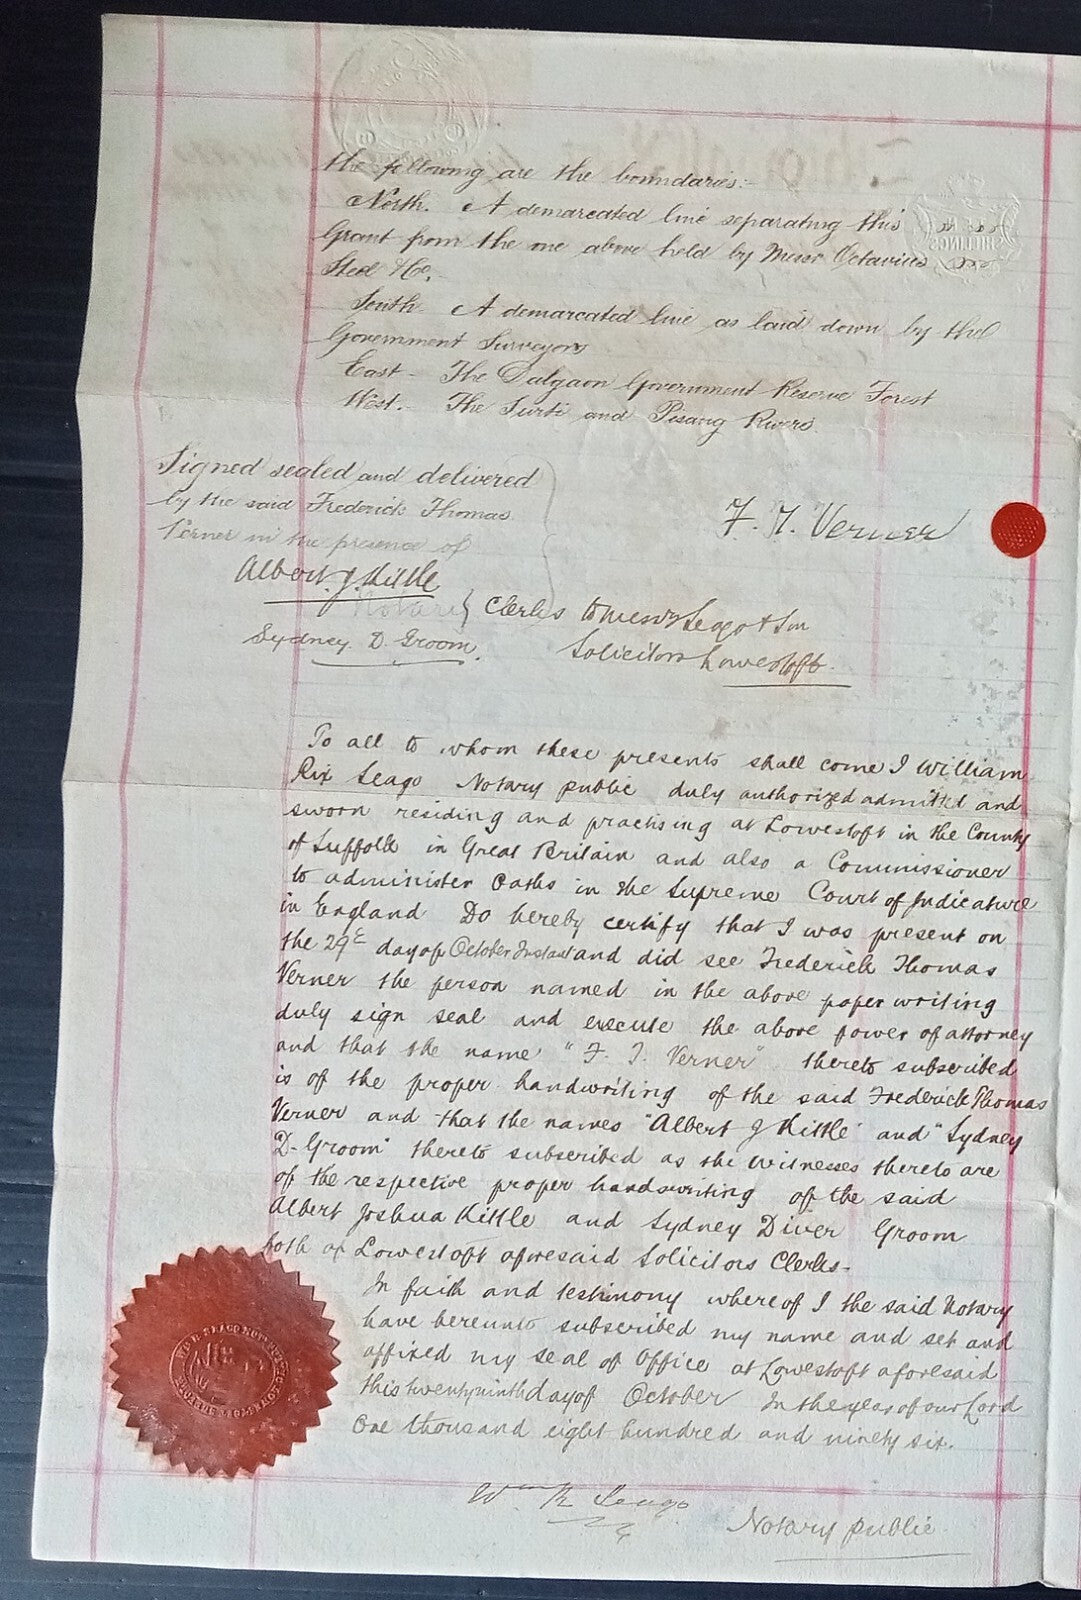 the following are the boundaries:-
North. A demarcated line separating this
Grant from the one above held by Messr Octavius
Steel & Co.
South. A demarcated line as laid down by the
Government Surveyors
East - The Dalgaon Government Reserve Forest
West. - The Turti and Pisang Rivers.
Signed sealed and delivered
by the said Frederick Thomas
Verner in the presence of
F. T. Verner
Albert J. Kittle
Sydney D. Groom.
Clerks to Messrs Seago & Son
Solicitors Lowestoft.
To all to whom these presents shall come I William
Rix Seago Notary public duly authorized admitted and
sworn residing and practising at Lowestoft in the County
of Suffolk in Great Britain and also a Commissioner
to administer Oaths in the Supreme Court of Judicature
in England Do hereby certify that I was present on
the 29th day of October Instant and did see Frederick Thomas
Verner the person named in the above paper writing
duly sign seal and execute the above power of attorney
and that the name "F. T. Verner" thereto subscribed
is of the proper handwriting of the said Frederick Thomas
Verner and that the names "Albert J Kittle" and "Sydney
D-Groom" thereto subscribed as the witnesses thereto are
of the respective proper handwriting of the said
Albert Joshua Kittle and Sydney Diver Groom
both of Lowestoft aforesaid Solicitors Clerks-
In faith and testimony whereof I the said Notary
have hereunto subscribed my name and set and
affixed my seal of Office at Lowestoft aforesaid
this twentyninth day of October In the year of our Lord
One thousand eight hundred and ninety six.
Wm R Seago
Notary public